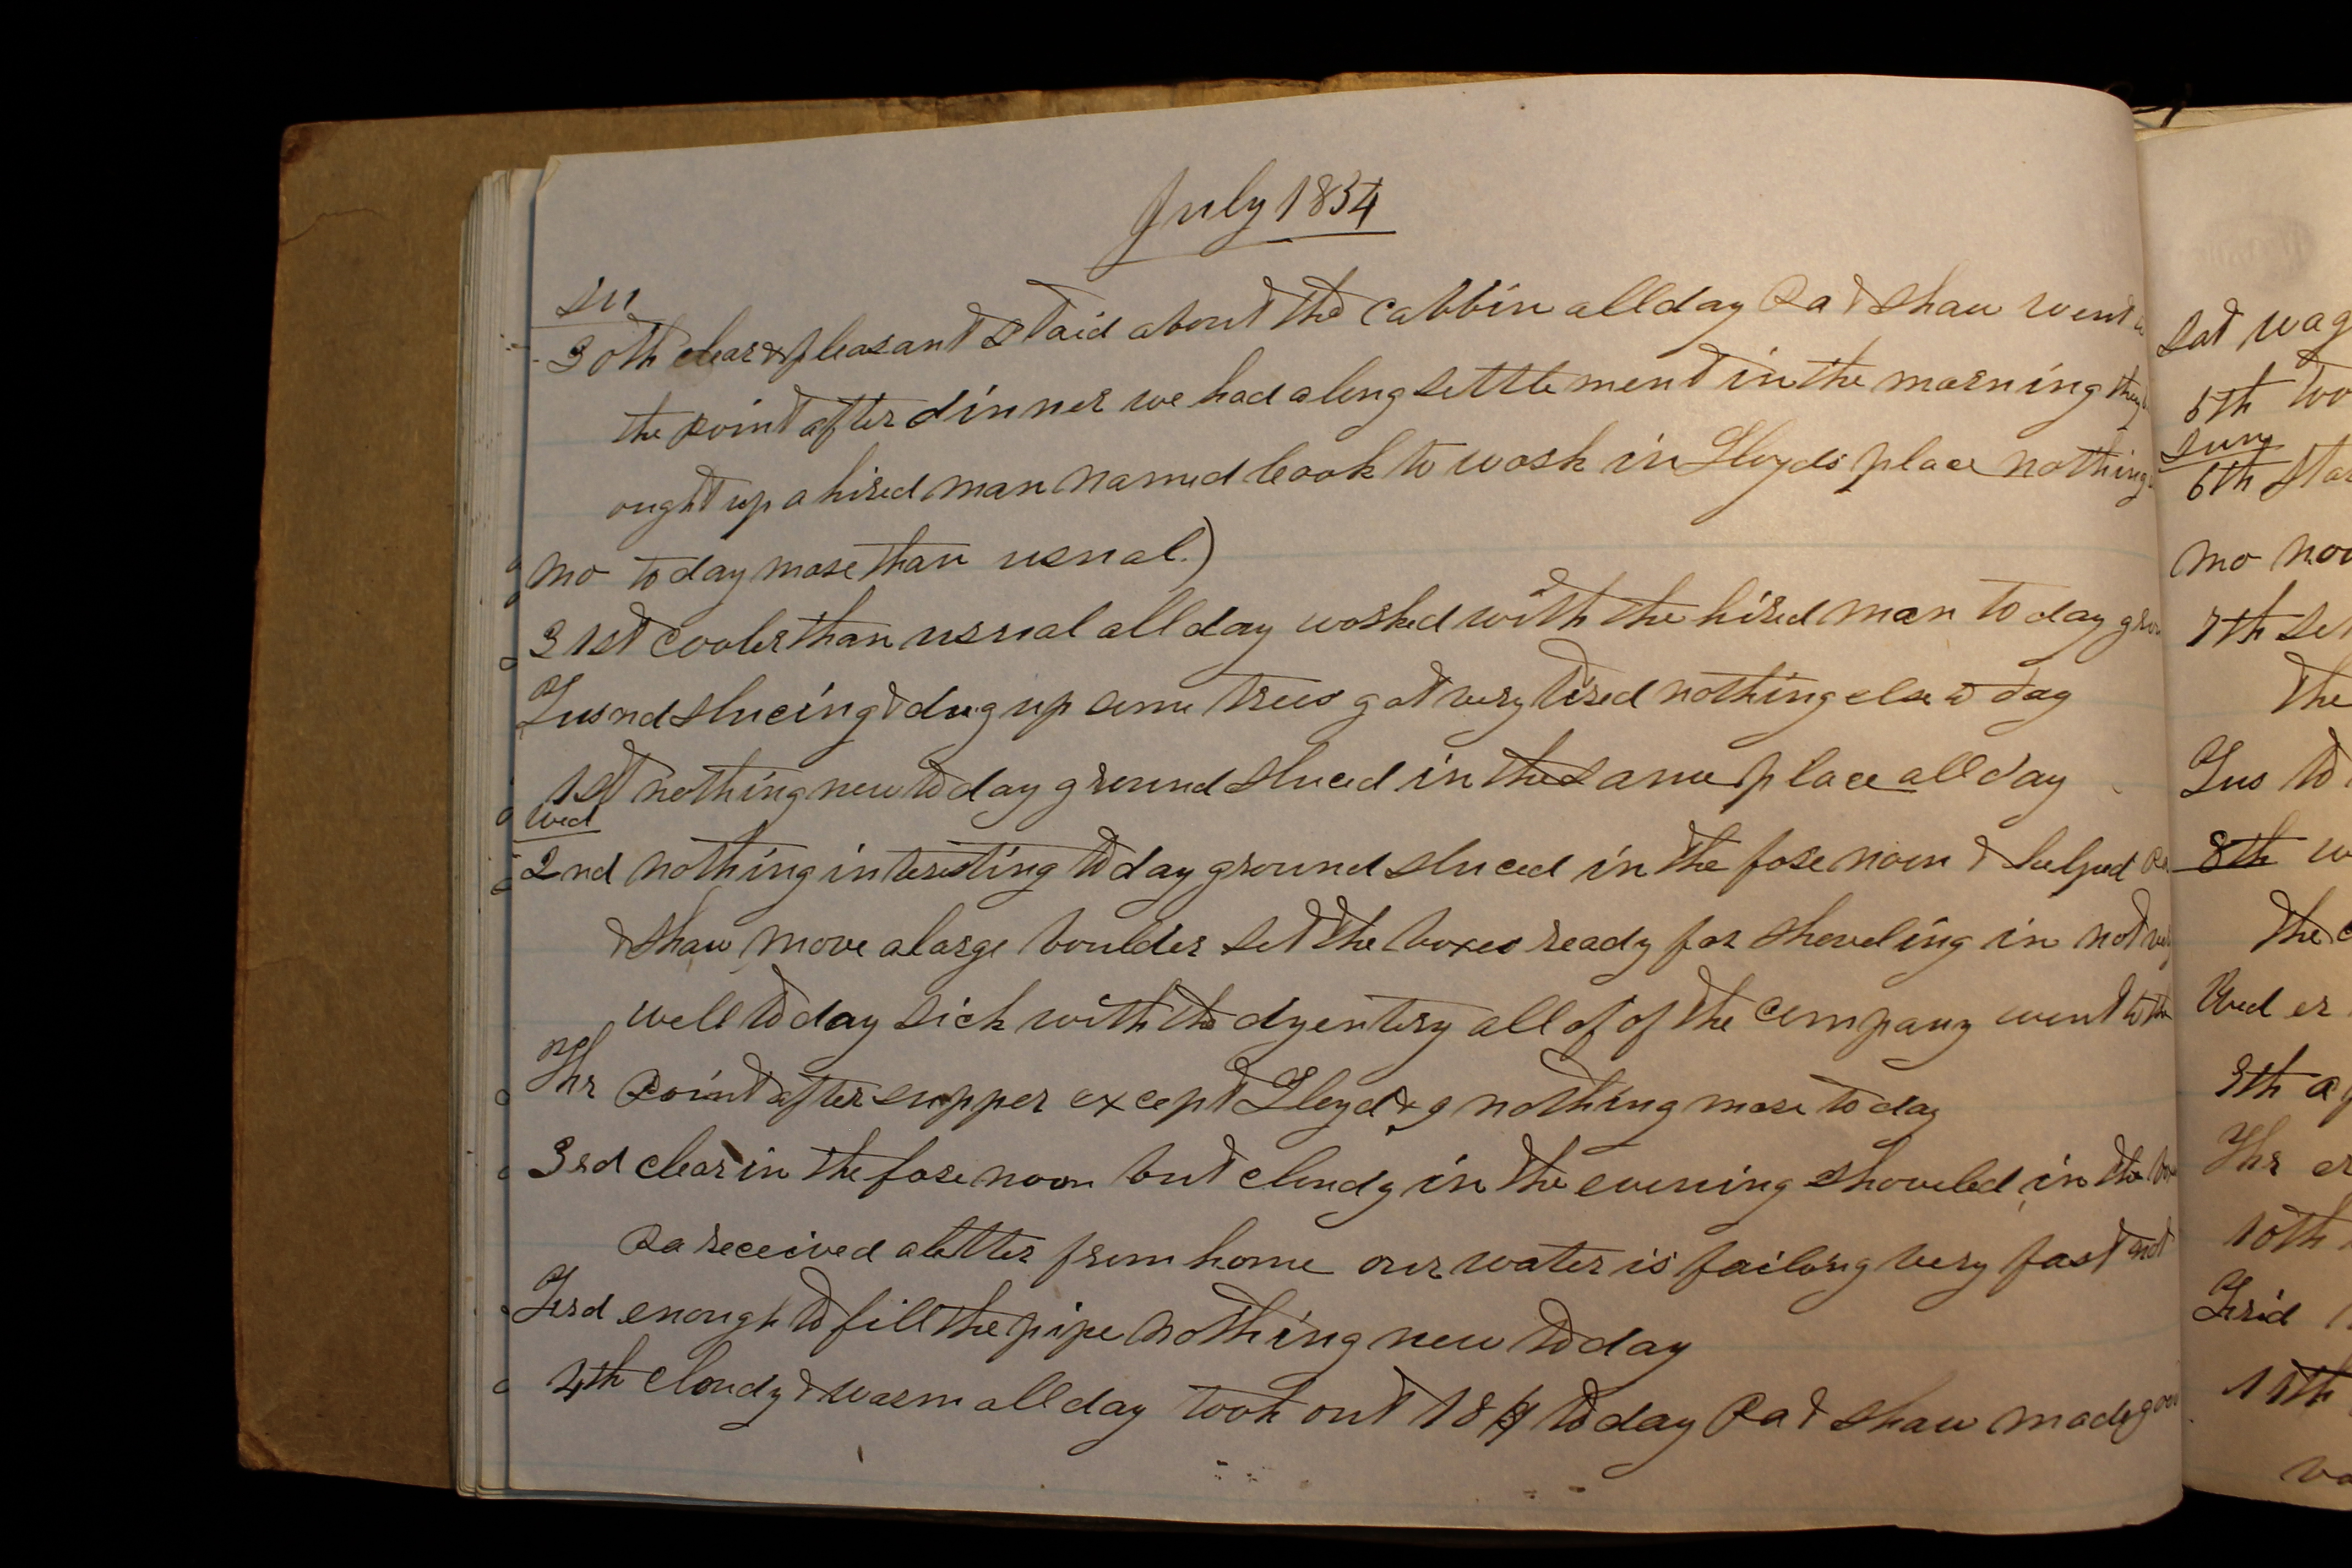 July 1854
Su
30th clear & pleasant staid about the cabbin all day Pa & Shaw went
the point after dinner we had a long settlement in the morning they
ought up a hired man named Cook to work in Lloyds place nothing
mo to day more than usual.)
31st cooler than usual all day worked with the hired man to day
Tus nd slucing & dug up some trees got very tired nothing else to day
1st nothing new to day ground sluced in the same place all day
Wed
2nd nothing interesting to day ground sluced in the fore noon & helped Pa
& Shaw move a large boulder set the boxes ready for shoveling in not very
well to day sick with the dyentery all of of the company went to the
Thr point after supper except Lloyd & I nothing more to day
3rd clear in the fore noon but cloudy in the evening shoveled in the
Pa received a letter from home our water is failing very fast not
Frd enough to fill the pipe nothing new to day
4th cloudy & warm all day took out 18 $ to day Pa & Shaw made
Sat
5th
Sun
6th
mo
7th
the
Tus to
8th
the
Wed
9th
Thr
10th
Frid
11th